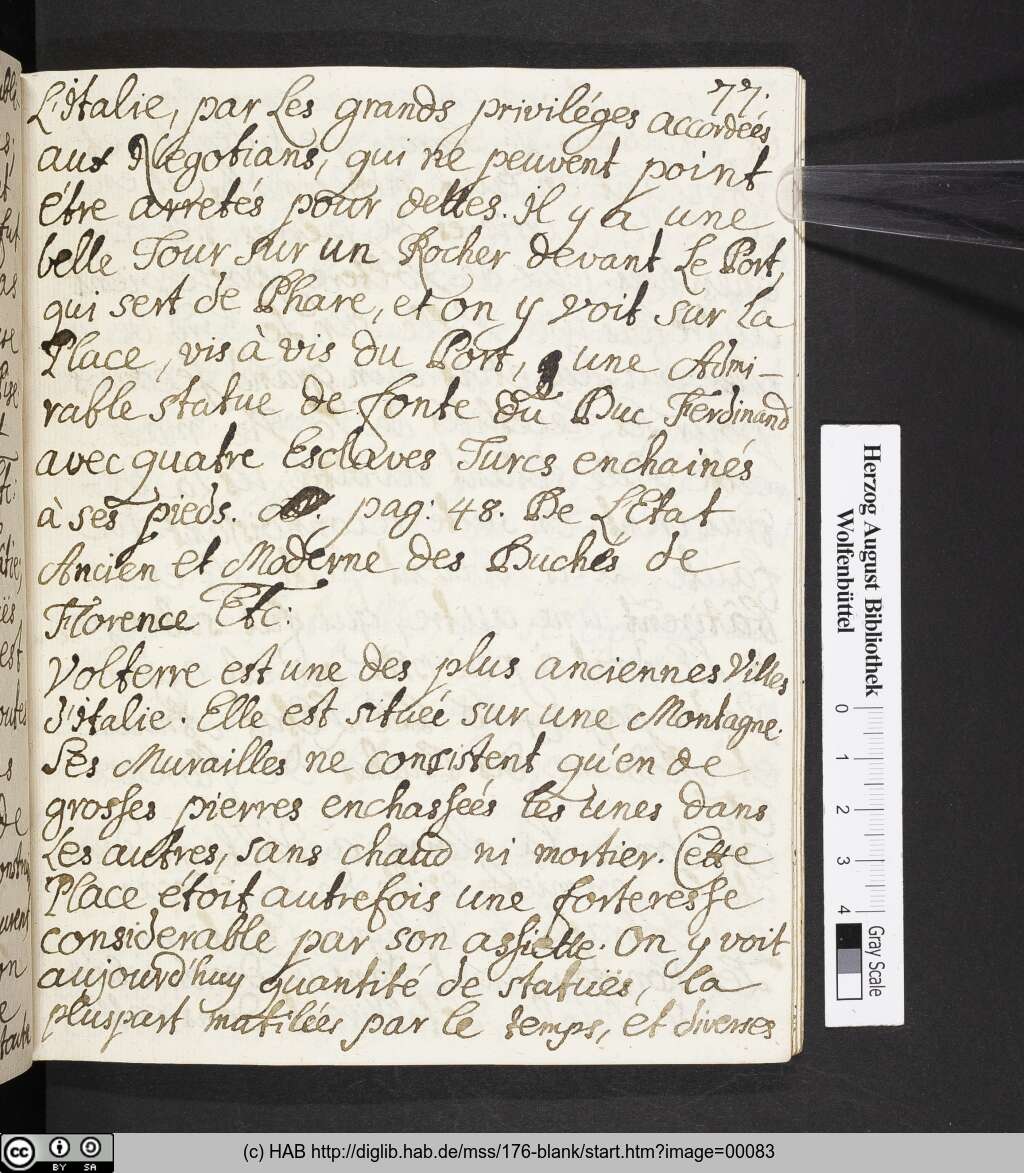 77.
L'Italie, par Les grands priviléges accordées
aux Negotians, qui ne peuvent point
étre arretés pour dettes. Il y a une
belle Tour sur un Rocher devant Le Port,
qui sert de Phare, et on y voit sur La
Place, vis à vis du Port, une Admi-
rable statue de fonte du Duc Ferdinand
avec quatre Esclaves Turcs enchainés
à ses pieds. pag: 48. De L'Etat
Ancien et Moderne des Duchés de
Florence Etc:
Volterre est une des plus anciennes Villes
d'Italie. Elle est situeé sur une Montagne.
Ses Murailles ne consistent qu'en de
grosses pierres enchasseés les unes dans
Les autres, sans chaud ni mortier. Cette
Place étoit autrefois une forteresse
considerable par son assiette. On y voit
aujourd'huy quantité de statuës, la
pluspart mutileés par le temps, et diverses
Herzog August Bibliothek
Wolfenbüttel
0 1 2 3 4
Gray Scale
CC BY SA
(c) HAB http://diglib.hab.de/mss/176-blank/start.htm?image=00083